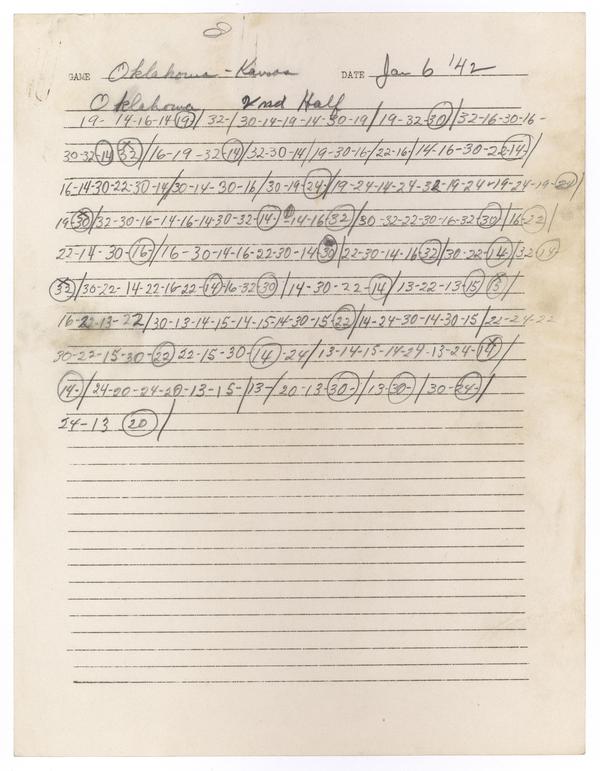 GAME Oklahoma - Kansas DATE Jan 6 '42
Oklahoma 2nd Half
19- 14-16-14 19 / 32- / 30-14-19-14-30-19 / 19-32-30 / 32-16-30-16-
30-32-14 32 / 16-19-32 14 / 32-30-14 / 19-30-16 / 22-16 / 14-16-30-22-14- /
16-14-30-22-30-14 / 30-14-30-16 / 30-19-24- / 19-24-14-24-32-19-24-19-24-19- /
19-30 / 32-30-16-14-16-14-30-32-14 / 14-16 32 / 30-32-22-30-16-32-30 / 16-22 /
22-14-30-16- / 16-30-14-16-22-30-14-30 / 22-30-14-16-32 / 30-22-14 / 32 19-
32 / 30-22-14-22-16-22-14-16-32-30 / 14-30-22-14 / 13-22-13-15 /
16-22-13-22 / 30-13-14-15-14-15-14-30-15 22 / 14-24-30-14-30-15 / 22-24-22
30-22-15-30-22 22-15-30-14-24 / 13-14-15-14-24-13-24-14 /
14- / 24-20-24-20-13-15- / 13- / 20-13-30- / 13-30- / 30-24- /
24-13 20 /